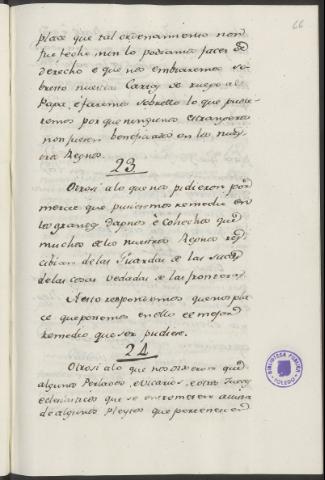 66
place que tal ordenamiento non
fue fecho nin lo podiamos facer de
derecho e que nos embiaremos so-
bresto nuestras Cartas de ruego al
Papa, e faremos sobrello lo que pudie-
remos por que ningunos estrangeros
non fuesen beneficiados en los nues-
tros Regnos.
23
Otrosi a lo que nos pidieron por
merced que pusiesemos remedio en
los grandes dapnos e cohechos que
muchos de los nuestros Regnos res-
cibian de las Guardas de las sacas
de las cosas vedadas de las fronteras.
A esto respondemos que nos pla-
ce que ponemos en ello el mejor
remedio que ser pudiere.
24
Otrosi a lo que nos dixeron que
algunos Perlados, e Vicarios, e otros Jueces
eclesiasticos que se entrometen a
de algunos pleytos que pertenecen
BIBLIOTECA PUBLICA
TOLEDO